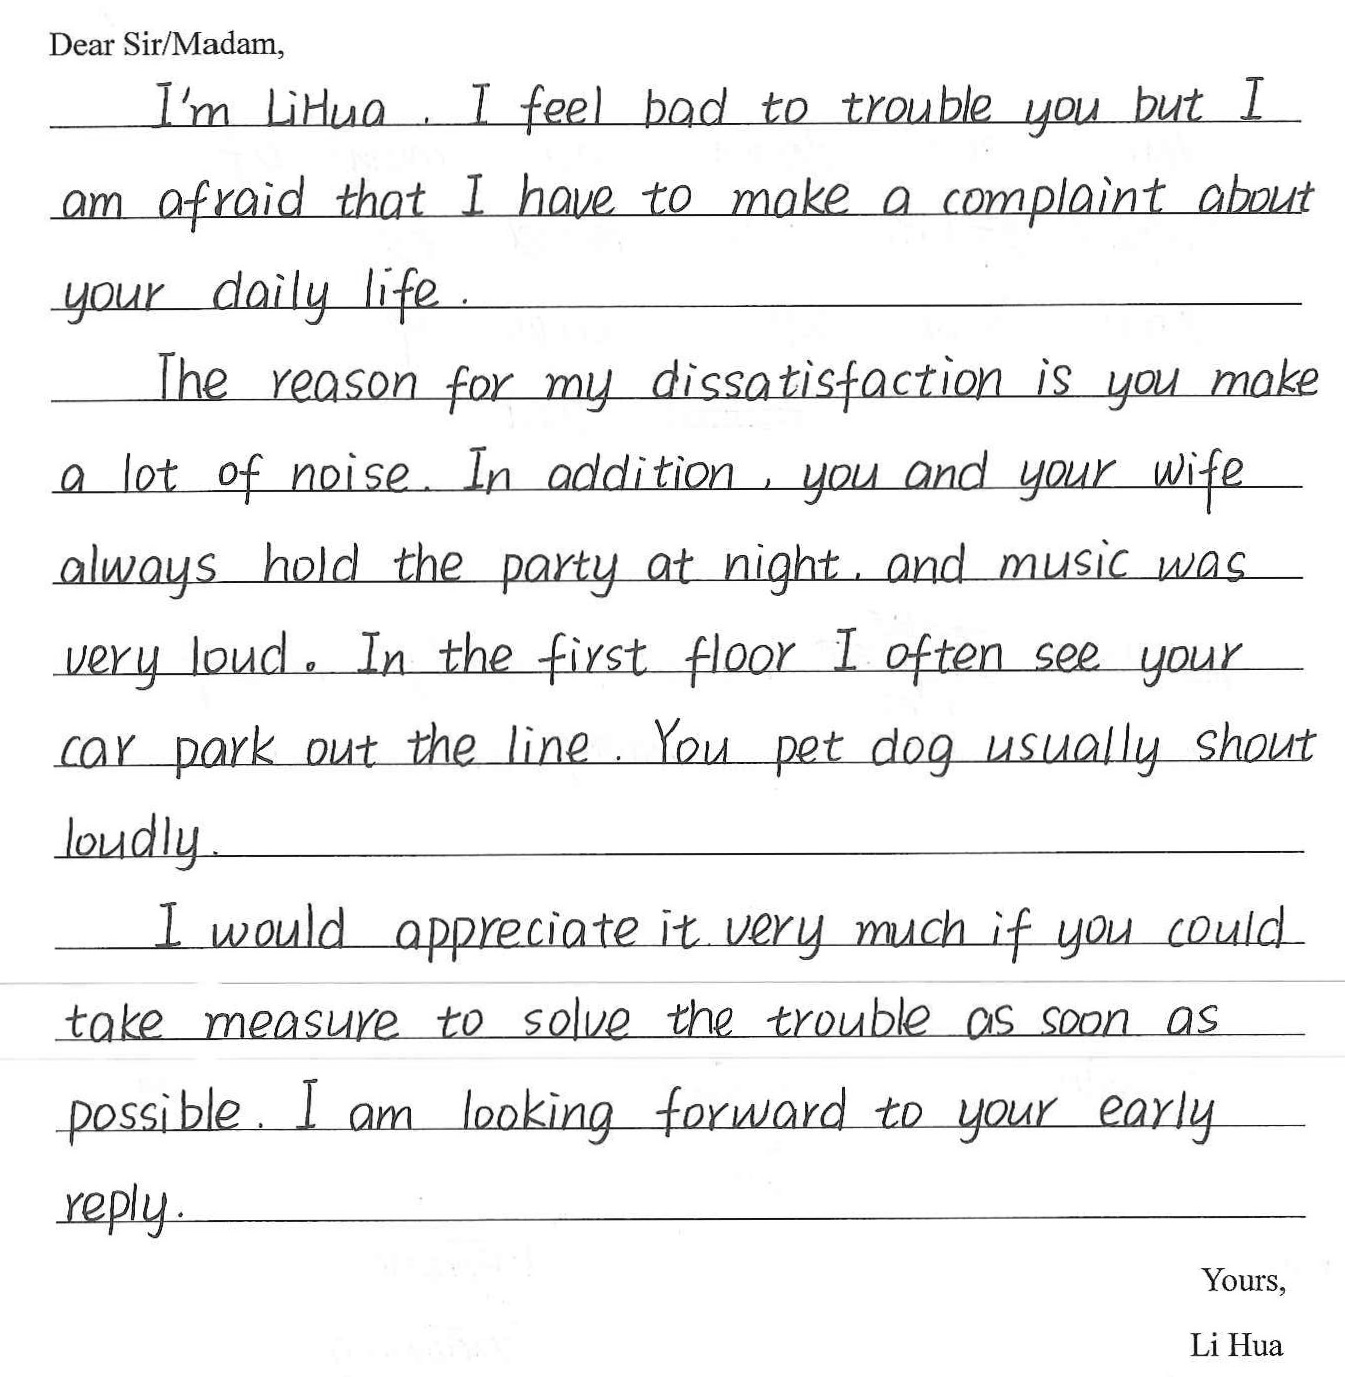 Dear Sir/Madam,
I'm LiHua. I feel bad to trouble you but I
am afraid that I have to make a complaint about
your daily life.
The reason for my dissatisfaction is you make
a lot of noise. In addition, you and your wife
always hold the party at night. and music was
very loud。In the first floor I often see your
car park out the line. You pet dog usually shout
loudly.
I would appreciate it very much if you could
take measure to solve the trouble as soon as
possible. I am looking forward to your early
reply.
Yours,
Li Hua